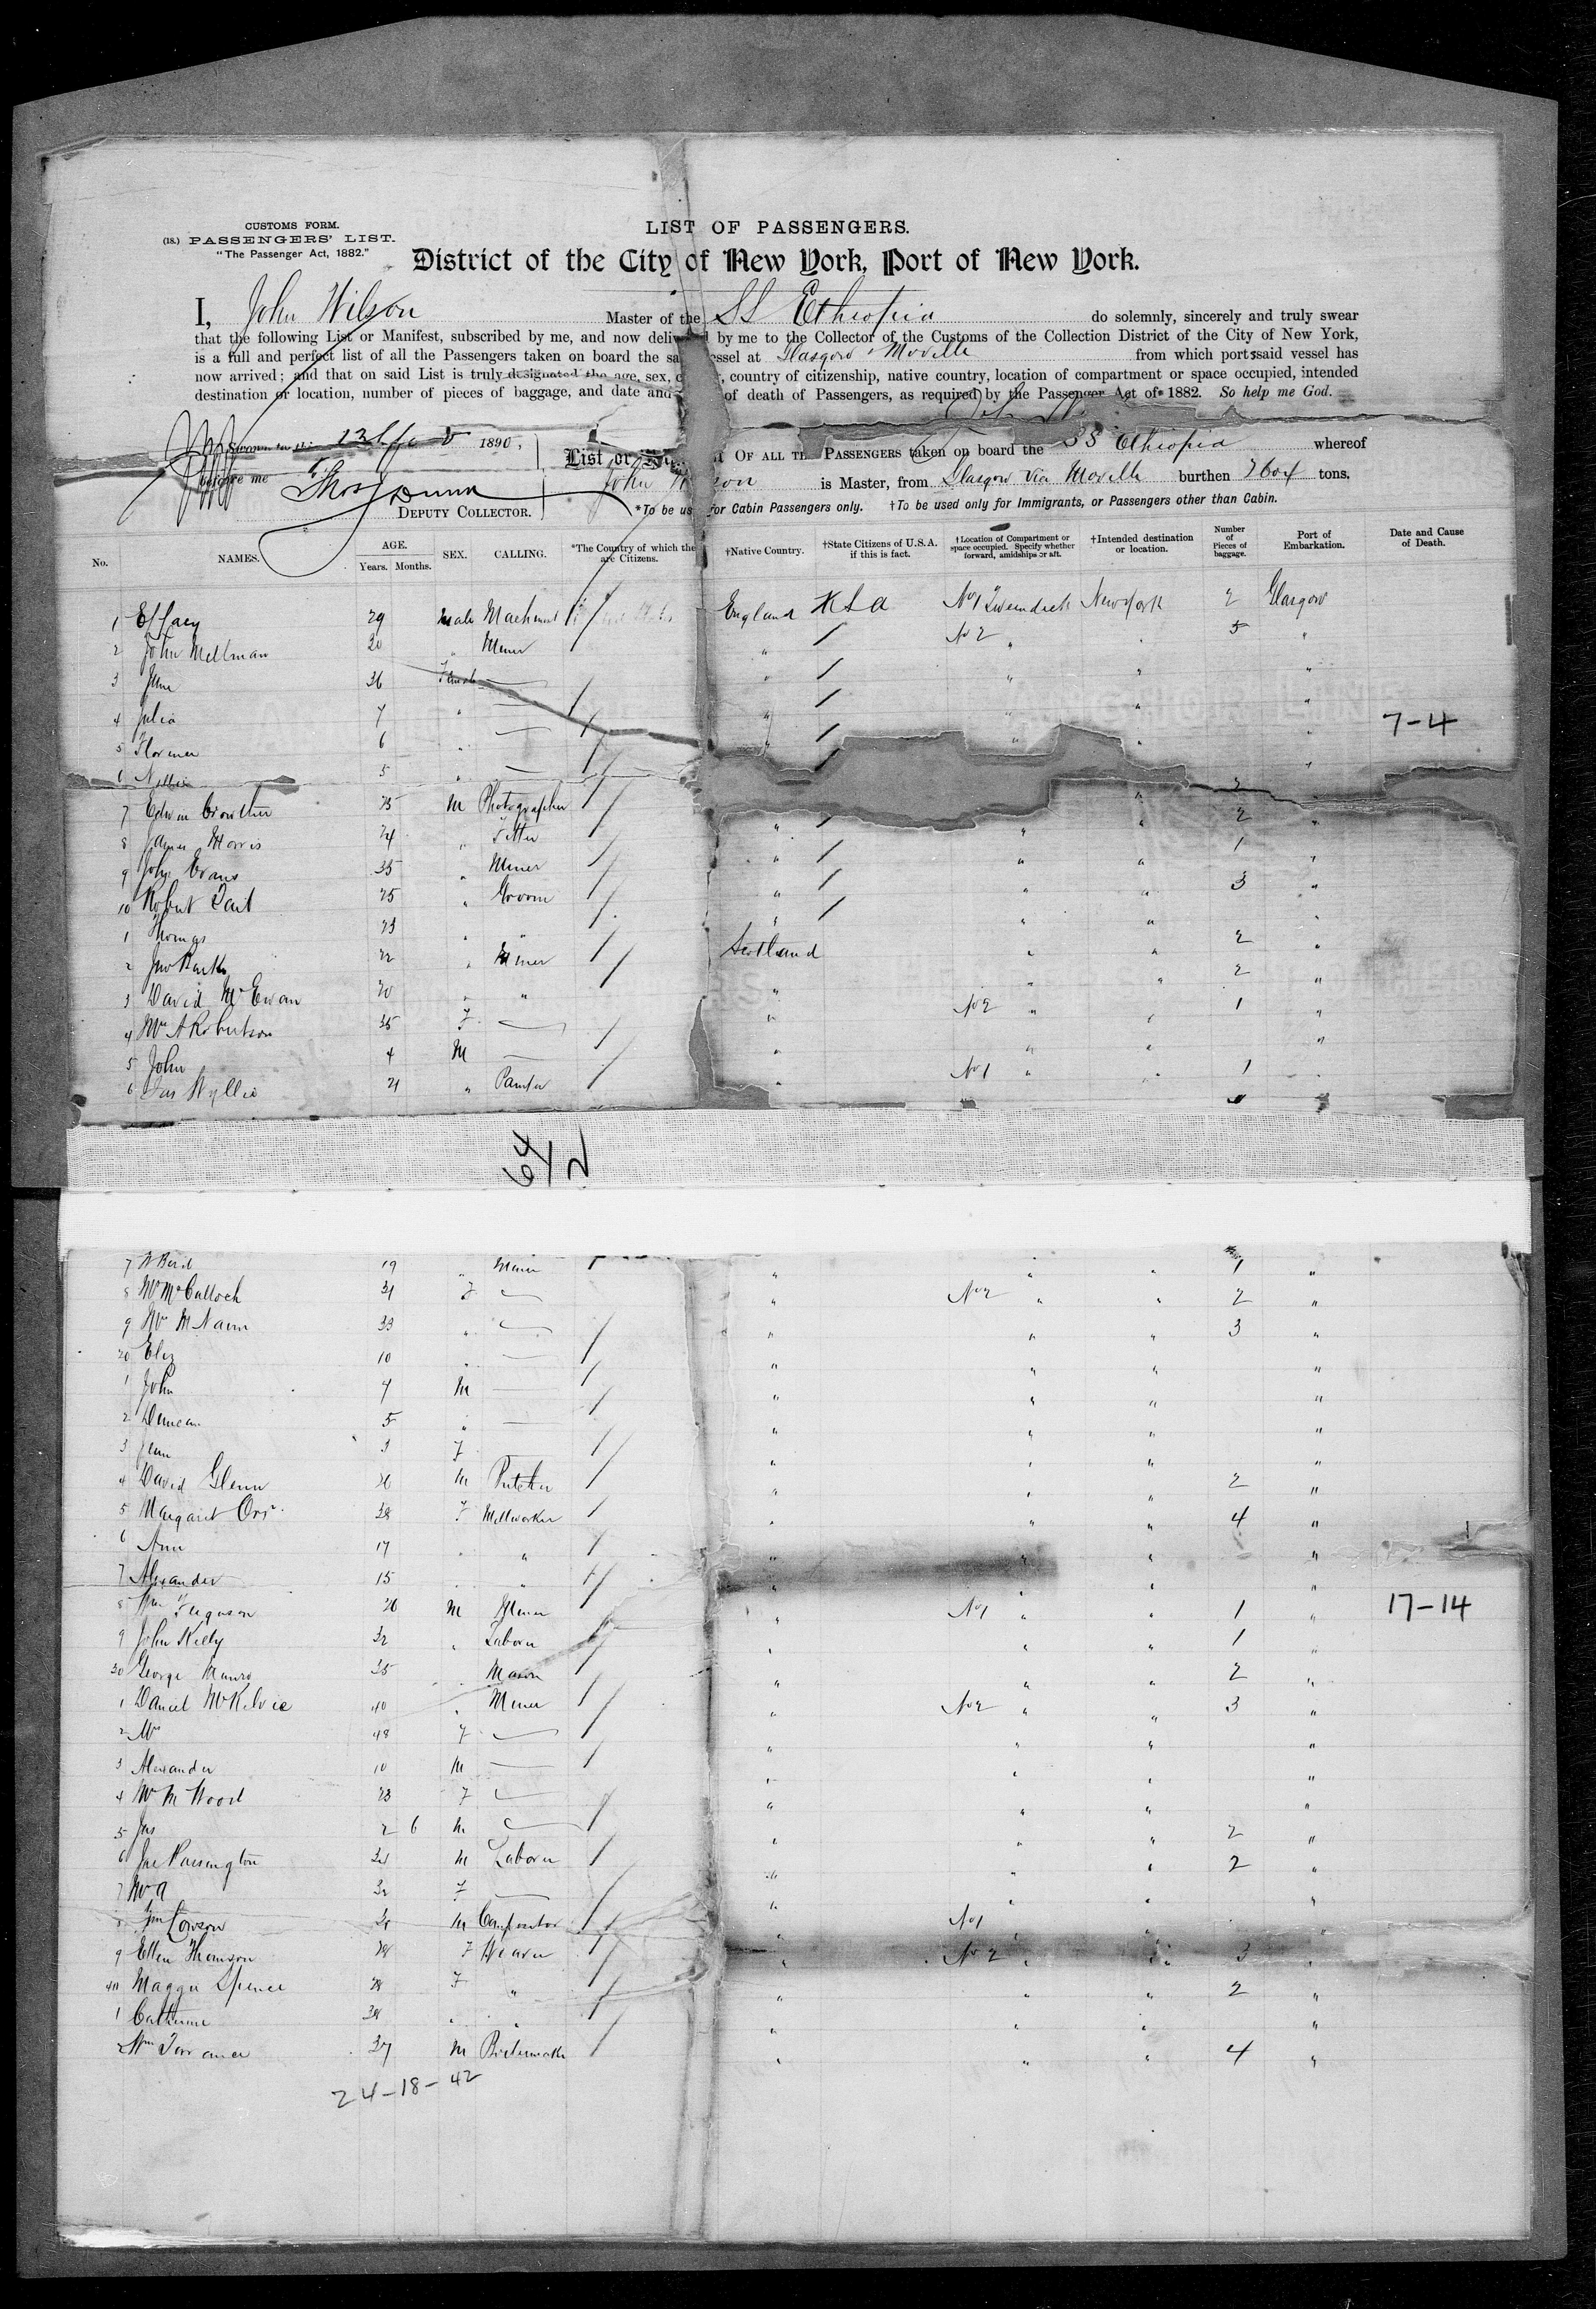 CUSTOMS FORM.
(18.) PASSENGERS' LIST.
"The Passenger Act, 1882."
LIST OF PASSENGERS.
District of the City of New York, Port of New York.
I, John Wilson Master of the SS Ethiopia do solemnly, sincerely and truly swear
that the following List or Manifest, subscribed by me, and now delivered by me to the Collector of the Customs of the Collection District of the City of New York,
is a full and perfect list of all the Passengers taken on board the said vessel at Glasgow & Moville from which port s said vessel has
now arrived; and that on said List is truly designated the age, sex, country of citizenship, native country, location of compartment or space occupied, intended
destination or location, number of pieces of baggage, and date and of death of Passengers, as required by the Passenger Act of 1882. So help me God.
Sworn to this 13th 1890,
before me Thos Dunn
DEPUTY COLLECTOR.
List or OF ALL THE PASSENGERS taken on board the SS Ethiopia whereof
John Wilson is Master, from Glasgow via Moville burthen 2604 tons.
*To be used for Cabin Passengers only. †To be used only for Immigrants, or Passengers other than Cabin.
No. NAMES. AGE. Years. Months. SEX. CALLING. *The Country of which they are Citizens. †Native Country. †State Citizens of U.S.A. if this is fact. †Location of Compartment or space occupied. Specify whether forward, amidships or aft. †Intended destination or location. Number of Pieces of baggage. Port of Embarkation. Date and Cause of Death.
1 29 Male Machinist England USA No 1 New York 2 Glasgow
2 John Mellman 30 " Miner " / No 2 " " 5 "
3 Jane 36 Female — " / " " "
4 Julia 7 " — " / " " "
7-4
5 Florence 6 " — " / " " "
6 Nellie 5 " —
7 Edwin Crowther 25 M Photographer / " 2
8 James Morris 24 " Fitter / " / " " 2 "
9 John Evans 35 " Miner / " / " " 1 "
10 Robert 25 " Groom / " / " " 3 "
1 Thomas 23 " " / " / " " "
2 22 " Miner / Scotland " " 2 "
3 David McEwan 20 " " / " " " 2 "
4 Mrs A Robertson 35 F — " No 2 " " 1 "
5 John 4 M — / " " " "
6 Jas Wyllie 21 " Painter / " No 1 " " 1 "
642
7 19 " Miner / " " " 1 "
8 Mrs McCulloch 31 F — " No 2 " " 2 "
9 Mrs McNairn 33 " — / " " " 3 "
20 Eliz 10 " — / " " " "
1 John 7 M — / " " " "
2 Duncan 5 " — " " " "
3 Jean 3 F / " " " "
4 David Glenn 26 M / " " " 2 "
5 Margaret Orr 38 F Millworker / " " " 4 "
6 Ann 17 " " / " " " "
7 Alexander 15 " " / " " " "
8 Wm Ferguson 26 M Miner / " No 1 " " 1 "
17-14
9 John Kelly 32 " Laborer / " " " 1 "
30 George Munro 35 " Mason / " " " 2 "
1 Daniel McKelvie 40 " Miner / " No 2 " " 3 "
2 Mrs 48 F — / " " " "
3 Alexander 10 M — / " " " "
4 Mrs M Wood 23 F — " " " "
5 Jas 2 6 M — / " " " 2 "
6 Jas 34 M Laborer / " " " 2 "
7 Mrs A 32 F — / " " " "
8 Jas M / " No 1 " "
9 Ellen Thomson 28 F Weaver / " No 2 " " 3 "
40 Maggie Spence 28 F " / " " " 2 "
1 Catherine " " / " " " "
2 Wm Torrance 37 M / " " " 4 "
24-18-42